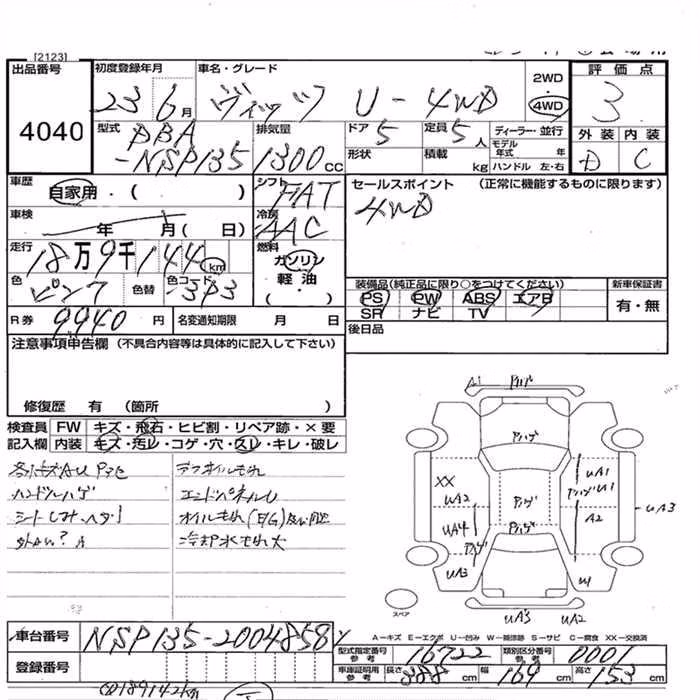 [2123]
出品番号 4040
初度登録年月 23 6月
車名・グレード ヴィッツ U-4WD
2WD 4WD
評価点 3
外装 内装
D C
型式 DBA-NSP135
排気量 1300cc
ドア 5 定員 5人
形状 積載 kg
ディーラー・並行
モデル年式 年
ハンドル 左・右
車歴 自家用・( )
シフト FAT
セールスポイント (正常に機能するものに限ります)
4WD
車検 年 月( 日)
冷房 AAC
走行 18万9千144km
燃料 ガソリン 軽油( )
色 ピンク 色替 色コード 3P3
装備品(純正品に限り○をつけてください) 新車保証書
PS PW ABS エアB
SR ナビ TV
有・無
R券 9,940円 名変通知期限 月 日
後日品
注意事項申告欄(不具合内容等は具体的に記入して下さい)
修復歴 有 (箇所 )
検査員記入欄
FW キズ・飛石・ヒビ割・リペア跡・×要
内装 キズ・汚レ・コゲ・穴・スレ・キレ・破レ
ハンドルハゲ
エンドパネルU
冷却水もれ大
A1 アハゲ
アハゲ
XX
UA2
UA4
アハゲ
UA3
アハゲ
アハゲ
UA1
アハゲ U1
A2
UA3
U1
UA3 UA2
スペア
A-キズ E-エクボ U-凹み W-補修跡 S-サビ C-腐食 XX-交換済
車台番号 NSP135-2004858
登録番号
型式指定番号 参考 16722 類別区分番号 参考 0001
車庫証明用 参考 長さ 388cm 幅 169cm 高さ 153cm